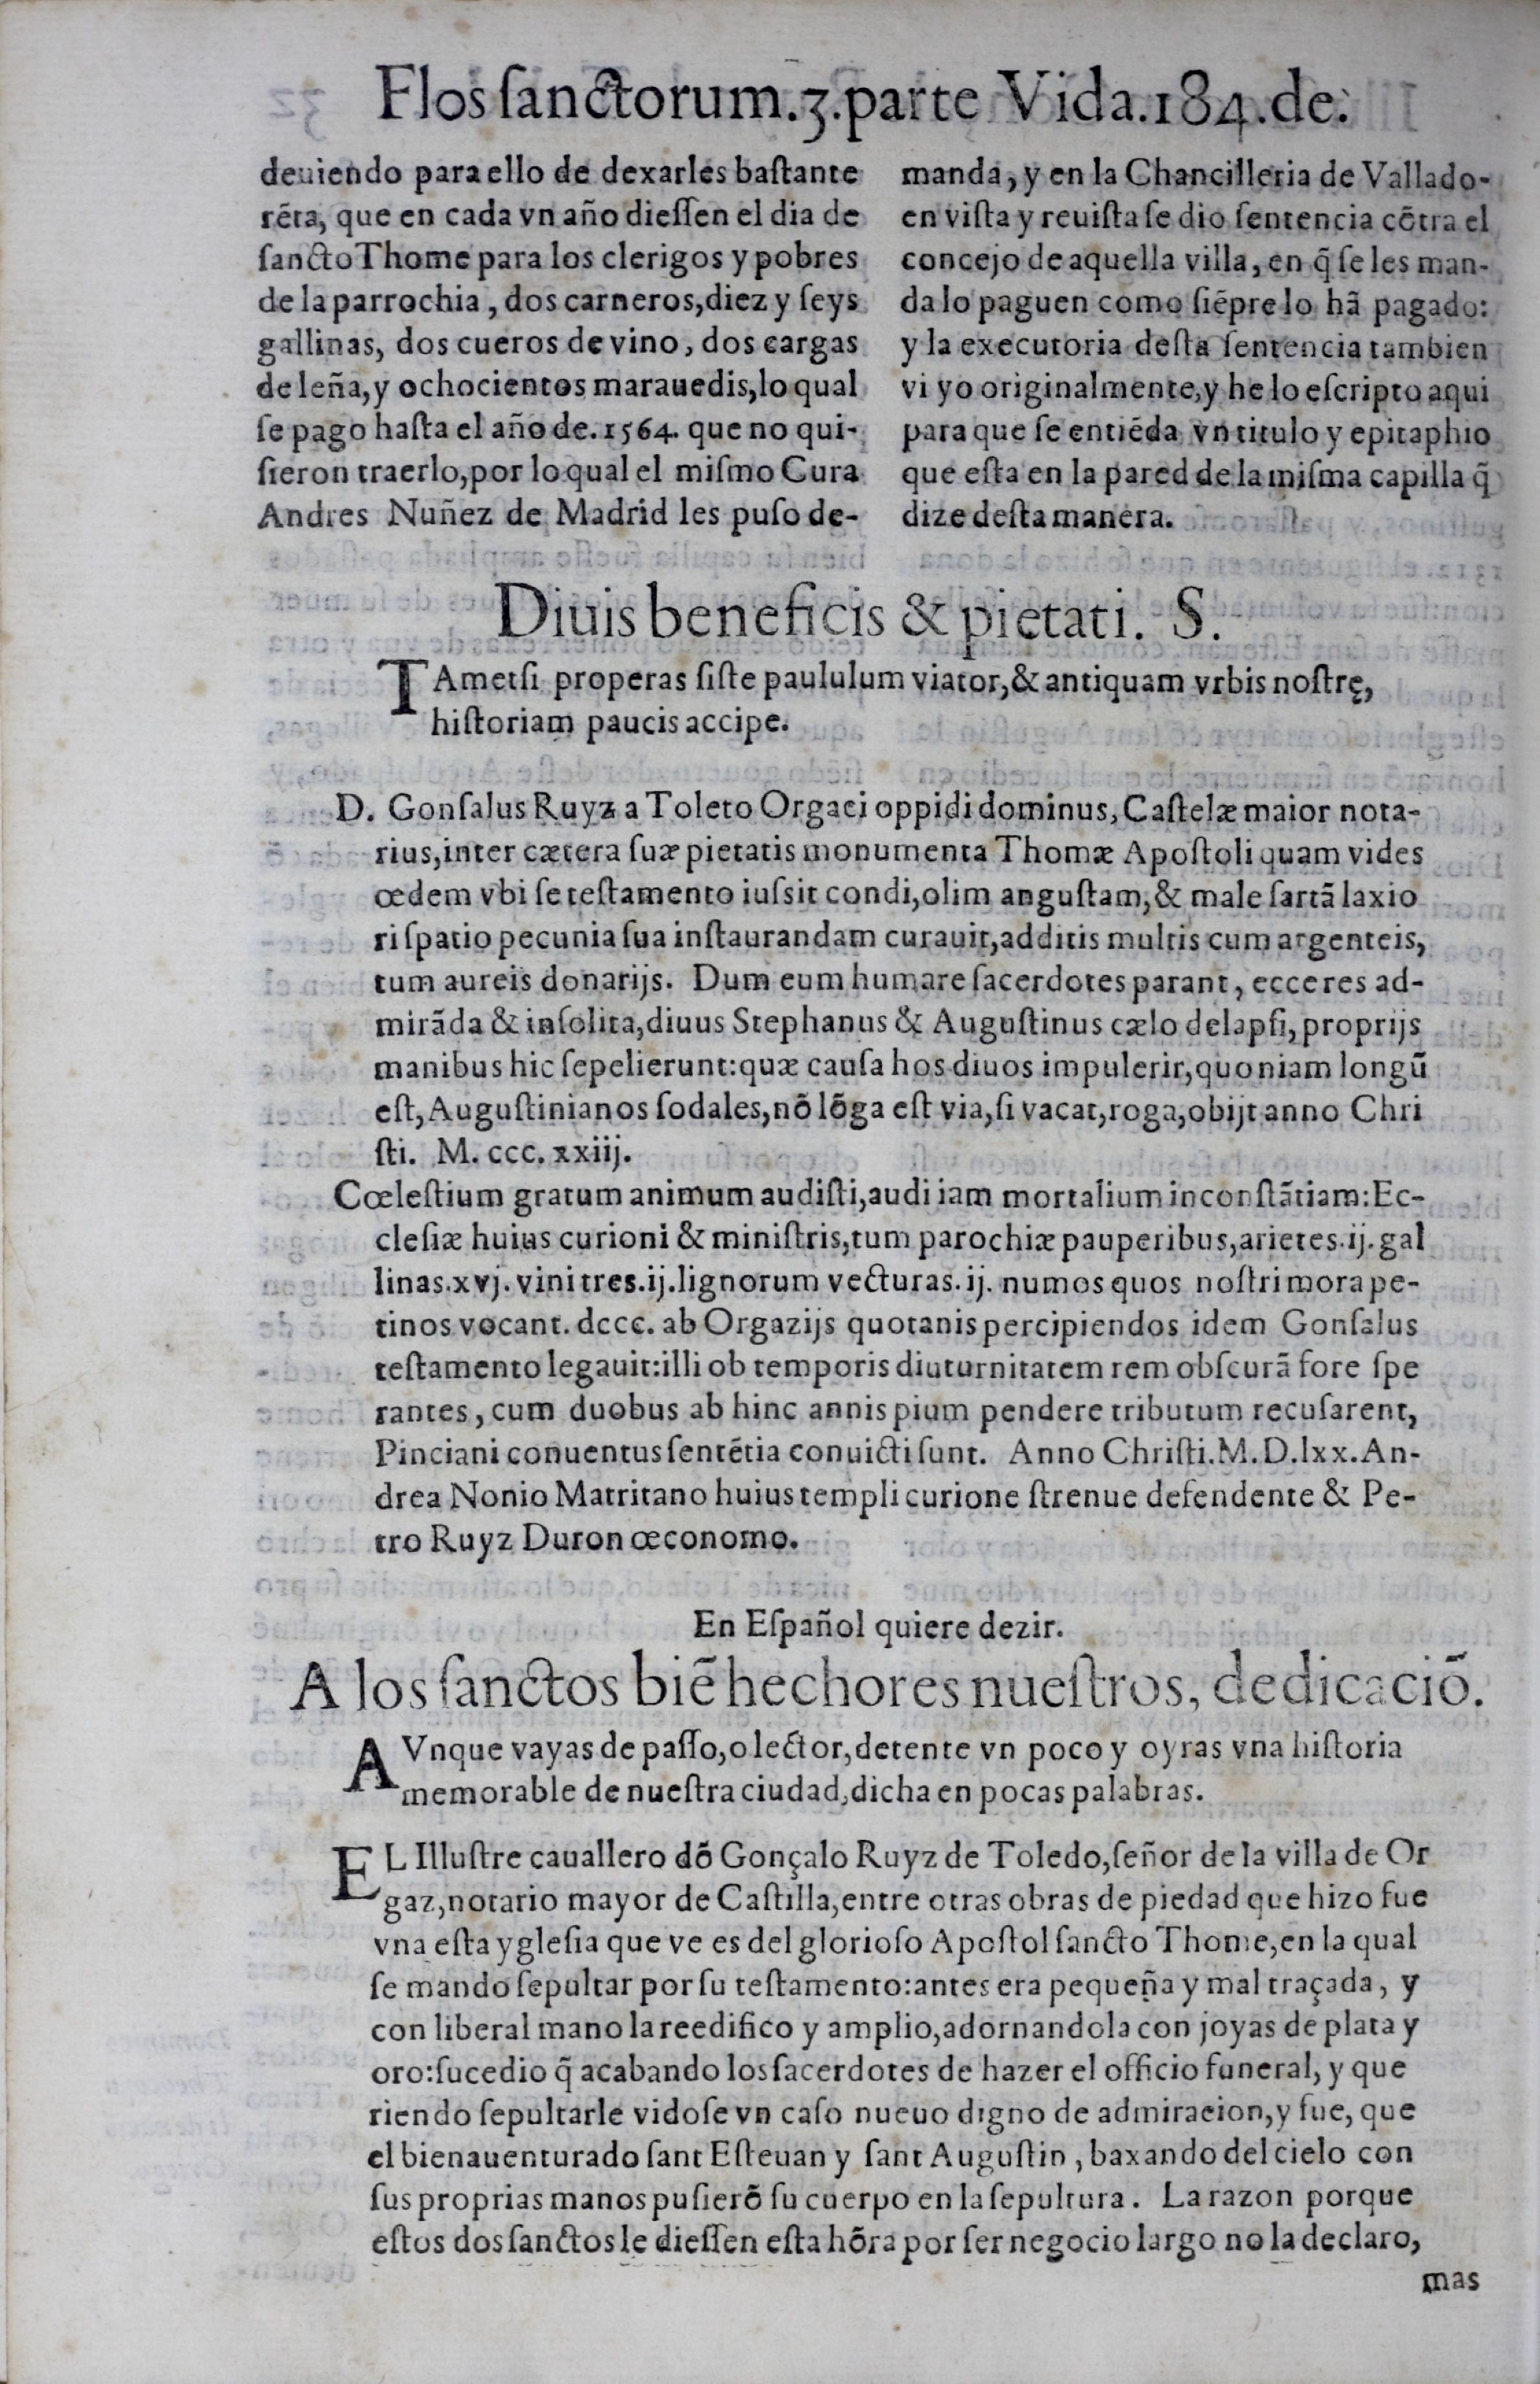 Flos ſanctorum.3.parte Vida.184.de.
deuiendo para ello de dexarles baſtante
rẽta, que en cada vn año dieſſen el dia de
ſancto Thome para los clerigos y pobres
de la parrochia, dos carneros, diez y ſeys
gallinas, dos cueros de vino, dos cargas
de leña, y ochocientos marauedis, lo qual
ſe pago haſta el año de. 1564. que no qui-
ſieron traerlo, por lo qual el miſmo Cura
Andres Nuñez de Madrid les puſo de-
manda, y en la Chancilleria de Vallado-
en viſta y reuiſta ſe dio ſentencia cõtra el
concejo de aquella villa, en q̃ ſe les man-
da lo paguen como ſiẽpre lo hã pagado:
y la executoria deſta ſentencia tambien
vi yo originalmente, y he lo eſcripto aqui
para que ſe entiẽda vn titulo y epitaphio
que eſta en la pared de la miſma capilla q̃
dize deſta manera.
Diuis beneficis & pietati. S.
TAmetſi properas ſiſte paululum viator, & antiquam vrbis noſtrę,
hiſtoriam paucis accipe.
D. Gonſalus Ruyz a Toleto Orgaci oppidi dominus, Caſtelæ maior nota-
rius, inter cætera ſuæ pietatis monumenta Thomæ Apoſtoli quam vides
œdem vbi ſe teſtamento iuſsit condi, olim anguſtam, & male ſartã laxio
ri ſpatio pecunia ſua inſtaurandam curauit, additis multis cum argenteis,
tum aureis donarijs. Dum eum humare ſacerdotes parant, ecce res ad-
mirãda & inſolita, diuus Stephanus & Auguſtinus cælo delapſi, proprijs
manibus hic ſepelierunt: quæ cauſa hos diuos impulerir, quoniam longũ
eſt, Auguſtinianos ſodales, nõ lõga eſt via, ſi vacat, roga, obijt anno Chri
ſti. M. ccc. xxiij.
Cœleſtium gratum animum audiſti, audi iam mortalium inconſtãtiam: Ec-
cleſiæ huius curioni & miniſtris, tum parochiæ pauperibus, arietes. ij. gal
linas. xvj. vini tres. ij. lignorum vecturas. ij. numos quos noſtri mora pe-
tinos vocant. dccc. ab Orgazijs quotanis percipiendos idem Gonſalus
teſtamento legauit: illi ob temporis diuturnitatem rem obſcurã fore ſpe
rantes, cum duobus ab hinc annis pium pendere tributum recuſarent,
Pinciani conuentus ſentẽtia conuicti ſunt. Anno Chriſti. M. D. lxx. An-
drea Nonio Matritano huius templi curione ſtrenue defendente & Pe-
tro Ruyz Duron œconomo.
En Eſpañol quiere dezir.
A los ſanctos biẽ hechores nueſtros, dedicaciõ.
AVnque vayas de paſſo, o lector, detente vn poco y oyras vna hiſtoria
memorable de nueſtra ciudad, dicha en pocas palabras.
EL Illuſtre cauallero dõ Gonçalo Ruyz de Toledo, ſeñor de la villa de Or
gaz, notario mayor de Caſtilla, entre otras obras de piedad que hizo fue
vna eſta ygleſia que ve es del glorioſo Apoſtol ſancto Thome, en la qual
ſe mando ſepultar por ſu teſtamento: antes era pequeña y mal traçada, y
con liberal mano la reedifico y amplio, adornandola con joyas de plata y
oro: ſucedio q̃ acabando los ſacerdotes de hazer el officio funeral, y que
riendo ſepultarle vidoſe vn caſo nueuo digno de admiracion, y fue, que
el bienauenturado ſant Eſteuan y ſant Auguſtin, baxando del cielo con
ſus proprias manos puſierõ ſu cuerpo en la ſepultura. La razon porque
eſtos dos ſanctos le dieſſen eſta hõra por ſer negocio largo no la declaro,
mas